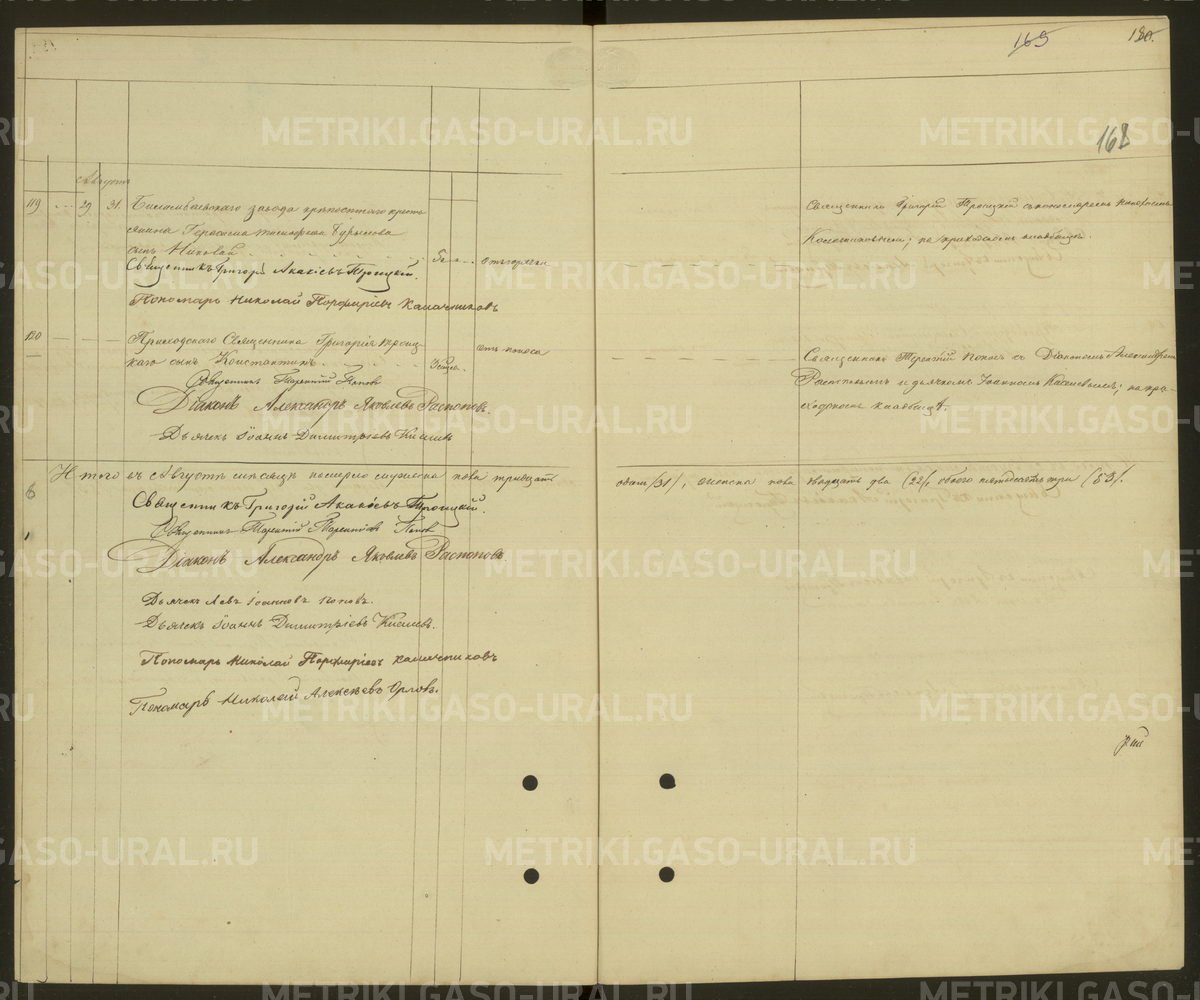 165 180.
168
Августъ
119 29 31. Билимбаевскаго завода крѣпостнаго кресть-
янина Герасима Тимофеева Бурылова
сынъ
Священникъ Григорій Акакіевъ Троицкій.
Пономарь Николай Порфиріевъ Калачниковъ
Священникъ Григорій Троицкій съ пономаремъ
приходскомъ кладбищѣ.
120 Приходскаго Священника Григорія Троиц-
каго сынъ Константинъ
отъ поноса
Священникъ Терентій Поповъ
Діаконъ Александръ Яковлевъ Распоповъ.
Дьячекъ Іоаннъ Димитріевъ Киселевъ
Священникъ Терентій Поповъ съ Діакономъ Александромъ
Распоповымъ и дьячкомъ Іоанномъ Киселевымъ; на при-
ходскомъ кладбищѣ.
Итого въ Августѣ мѣсяцѣ померло мужеска пола тридцать
одинъ /31/, женска пола двадцать два /22/, обоего пятьдесятъ три /53/.
Священникъ Григорій Акакіевъ Троицкій.
Священникъ Терентій Терентіевъ Поповъ
Діаконъ Александръ Яковлевъ Распоповъ
Дьячекъ Левъ Іоанновъ Поповъ.
Дьячекъ Іоаннъ Димитріевъ Киселевъ.
Пономарь Николай Порфиріевъ Калачниковъ
Пономарь Николай Алексѣевъ Орловъ.
METRIKI.GASO-URAL.RU